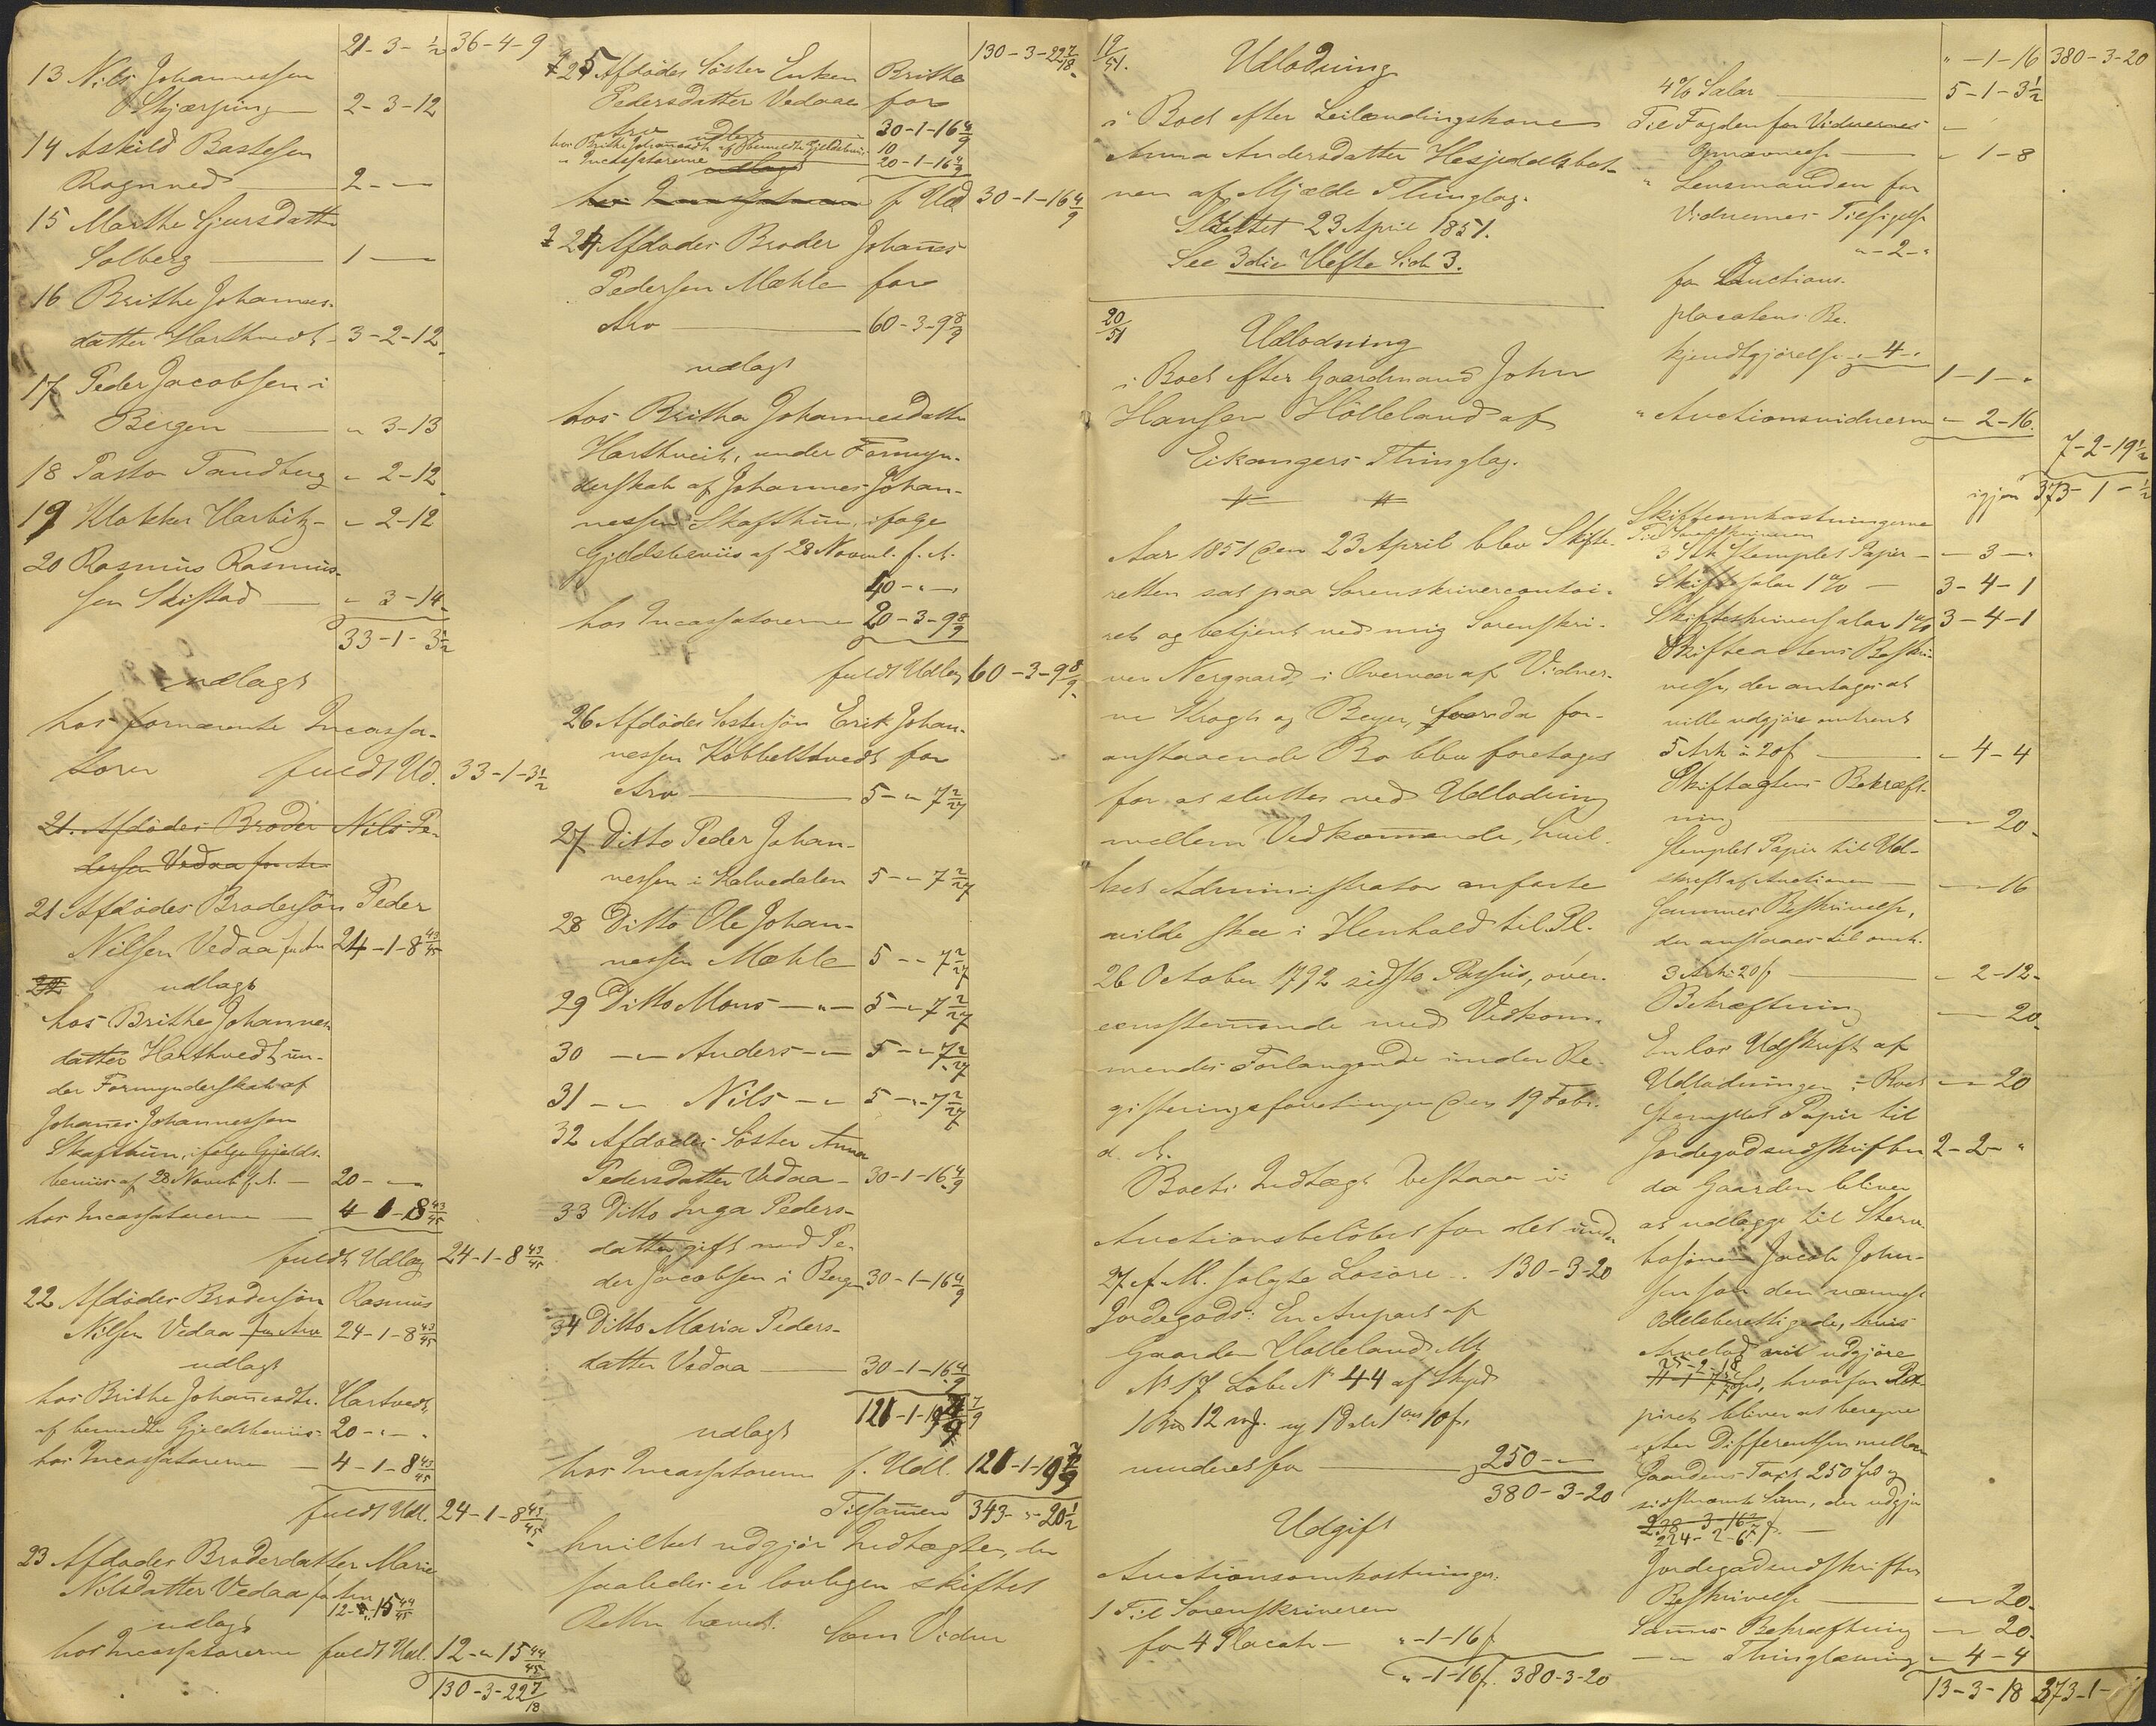 21-3-½ 36-4-9
13 Nils Johannessen
Skjærping 2-3-12
14 Askild Bastesen
Rognved 2-"-"
15 Marthe Sjursdatter
Solberg 1-"-"
16 Brithe Johannes-
datter Harthvedt 3-2-12
17 Peder Jacobsen i
Bergen " 3-13
18 Pastor Tandberg " 2-12
19 Klokker Harbitz " 2-12
20 Rasmus Rasmus-
sen Skistad " 3-14
33-1-3½
udlagt
hos fornævnte Incassa-
torer fuldt Ud. 33-1-3½
21. Afdødes Broder Nils Pe-
dersen Vedaa for Arv
21 Afdødes Brodersøn Peder
Nilsen Vedaa for Arv 24-1-8 43/45
22 udlagt
hos Brithe Johannes-
datter Harthvedt un-
der Formynderskab af
Johanes Johannessen
Skafthun, ifølge Gjelds-
beviis af 28 Novemb. f. A. 20-"-"
hos Incassatorerne 4-1-8 43/45
fuldt Udlæg 24-1-8 43/45
22 Afdødes Brodersøn Rasmus
Nilsen Vedaa for Arv 24-1-8 43/45
udlagt
hos Brithe Johanesdtr. Hartvedt
af bemeldte Gjeldsbeviis 20-"-"
hos Incassatorerne 4-1-8 43/45
fuldt Udl. 24-1-8 43/45
23 Afdødes Broderdatter Marie
Nilsdatter Vedaa for Arv
12-"-15 44/45
udlagt
hos Incassatorerne fuldt Udl. 12-"-15 44/45
130-3-22 7/18
130-3-22 7/18
25 Afdødes Søster Enken Brithe
Pedersdatter Vedaae for
Arv 30-1-16 4/9
udlagt
hos Brithe Johanesdtr. af bemeldte Gjeldsbeviis 10
" Incassatorerne 20-1-16 4/9
udlagt
hos Incassatorerne f Uld 30-1-16 4/9
24 Afdødes Broder Johanes
Pedersen Mæhle for
Arv 60-3-9 8/9
udlagt
hos Britha Johannesdatter
Harthveit, under Formyn-
derskab af Johannes Johan-
nessen Skafthun, ifølge
Gjeldsbeviis af 28 Novmb. f. A.
40-"-"
hos Incassatorerne 20-3-9 8/9
fuldt Udlæg 60-3-9 8/9
26 Afdødes Søstersøn Erik Johan-
nessen Kobbeltvedt for
Arv 5-"-7 2/27
27 Ditto Peder Johan-
nessen i Kalvedalen 5-"-7 2/27
28 Ditto Ole Johan-
nessen Mæhle 5-"-7 2/27
29 Ditto Mons -"- 5-"-7 2/27
30 -"- Anders -"- 5-"-7 2/27
31 -"- Nils -"- 5-"-7 2/27
32 Afdødes Søster Anna
Pedersdatter Vedaa 30-1-16 4/9
33 Ditto Inga Peders-
datter gift med Pe-
der Jacobsen i Bergen 30-1-16 4/9
34 Ditto Maria Peders-
datter Vedaa 30-1-16 4/9
121-1-19 7/9
udlagt
hos Incassatorerne f. Udl. 121-1-19 7/9
Tilsamen 343-"-20½
hvilket udgjør Indtægten, der
saaledes er lovligen skiftet
Retten hævet.
Som Vidner
19/51.
Udlodning
i Boet efter Leilændingskone
Anna Andersdatter Hesjedalsbot-
nen af Mjelde Thinglag.
Sluttet 23 April 1851.
See 3die Hefte Side 3.
20/51
Udlodning
i Boet efter Gaardmand John
Hansen Hölleland af
Eikangers Thinglag.
Aar 1851 den 23 April blev Skifte-
retten sat paa Sorenskrivercontoi-
ret og betjent ved mig Sorenskri-
ver Nergaard, i Overvær af Vidner-
ne Krogh og Beyer, hvorda for-
anstaaende Bo blev foretaget
for at sluttes ved Udlodning
mellem Vedkomende, hvil-
ket Administrator anførte
vilde skee i Henhold til Pl.
26 October 1792 sidste Passus, over-
eenstemmende med Vedkom-
mendes Forlangende under Re-
gistreringsforretningen den 19 Febr.
d. A.
Boets Indtægt bestaar i:
Auctionsbeløbet for det under
27 f. M. solgte Løsøre 130-3-20
Jordegods: En Anpart af
Gaarden Hölleland M.
No 17 Løbe No 44 af Skyld
12 og 1 Dlr 1 ort 10 s.
vurderet for 250-"-"
380-3-20
Udgift
Auctionsomkostninger:
1 Til Sorenskriveren
for 4 Placate "-1-16 s
"-1-16 s. 380-3-20
"-1-16 380-3-20
4% Salær 5-1-3½
Til Fogden for Vidnernes
Opnævnelse " 1-8
" Lensmanden for
Vidnernes Tilsigelse
"-2-"
for Auctions-
placatens Be-
kjendtgjørelse "-4-"
1-1-"
" Auctionsvidnerne " 2-16
7-2-19½
igjen 373-1-½
Skifteomkostningerne
Til Sorenskriveren
3 Ark Stemplet Papir "-3-"
Skiftesalær 1% 3-4-1
Skifteskriversalær 1% 3-4-1
Skifteactens Beskri-
velse, der antages at
ville udgjøre omtrent
5 Ark à 20 s " 4-4
Skifteactens Bekræft-
ning "-"-20
Stemplet Papir til Ud-
skrift af Auctionen "-"-16
Sammes Beskrivelse,
der ansstaaes til omtr.
3 Ark 20 s " 2-12
Bekræftning "-"-20
En løs Udskrift af
Udlodningen i Boet "-"-20
Stemplet Papir til
Jordegodsudskriften 2-2-"
da Gaarden bliver
at udlægge til Sterv-
bosønnen Jacob John-
sen som den nærmest
Odelsberettigede, hvis
Arvelod vil udgjøre
25-2-18
hvorfor Pa-
piret bliver at beregne
efter Differentsen mellem
Gaardens Taxt 250 Spd og
sidstnævnte Sum, der udgjør
224-2-6
Jordegodsudskriftens
Beskrivelse "-"-20
Sammes Bekræftning "-"-20
-"- Thinglæsning " 4-4
13-3-18 373-1-